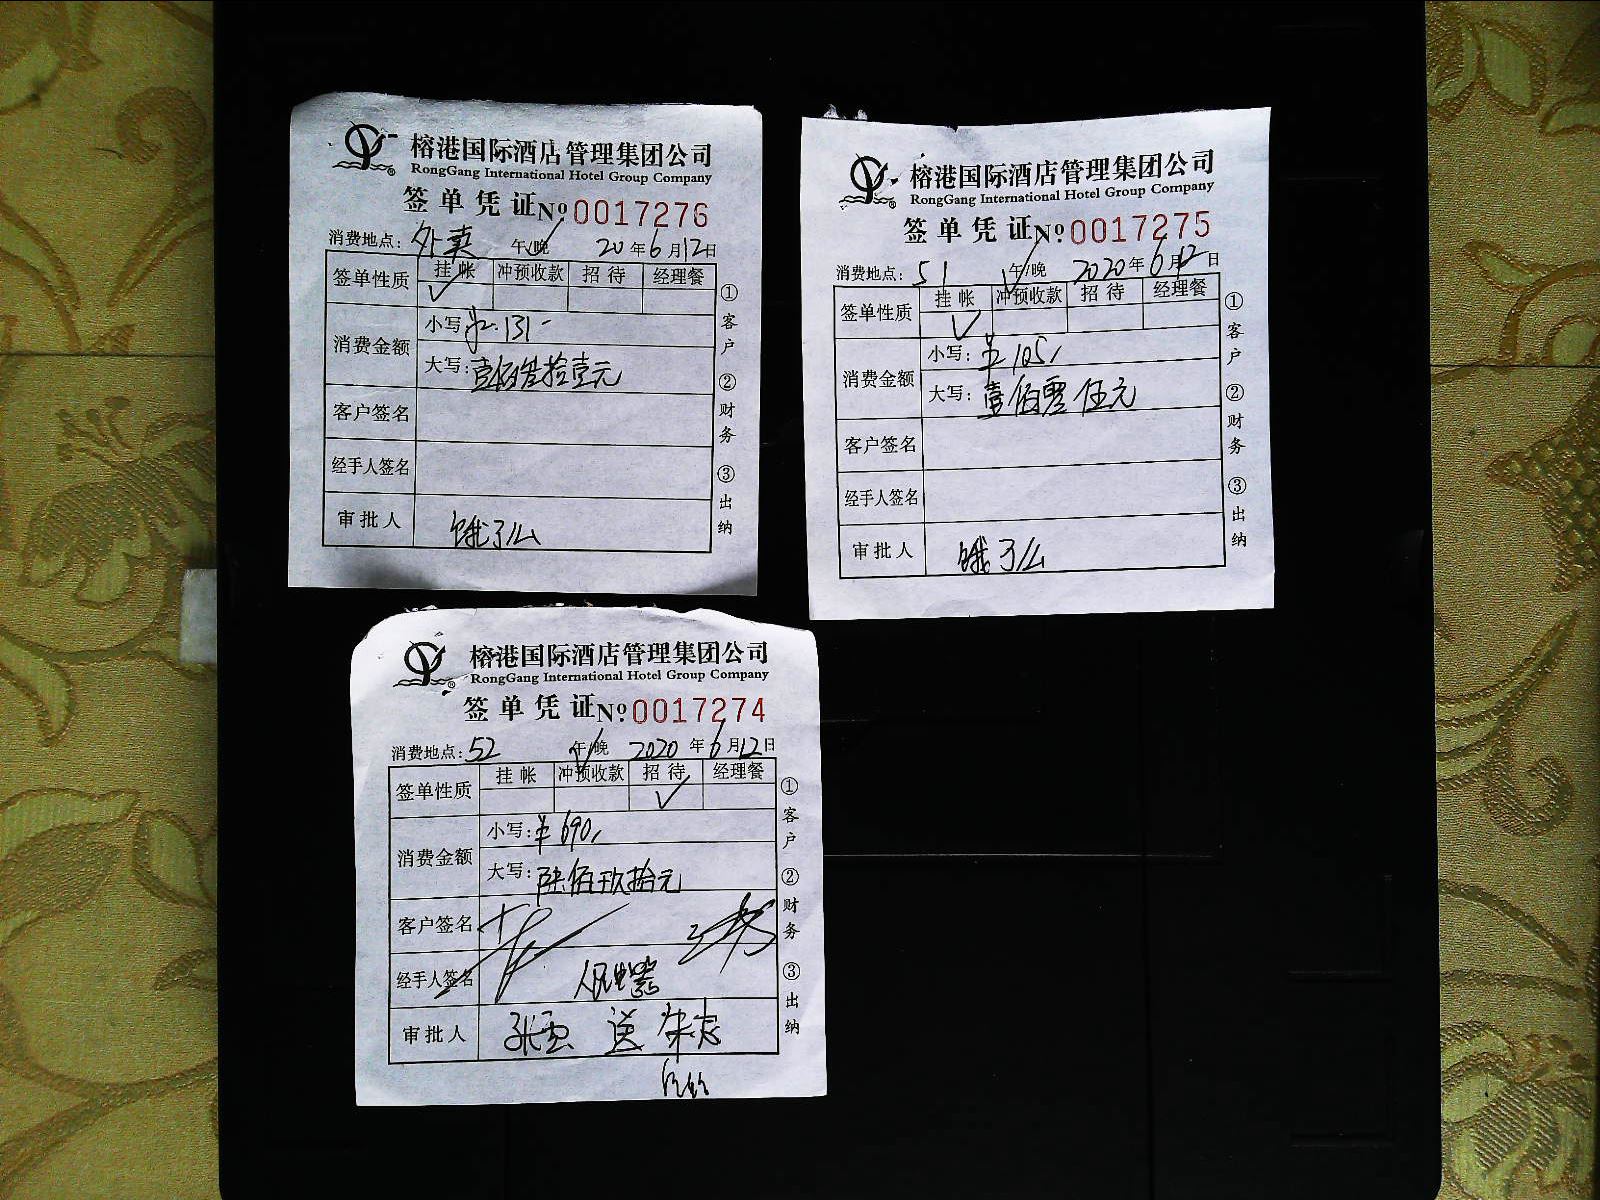 榕港国际酒店管理集团公司
RongGang International Hotel Group Company
签单凭证 № 0017276
消费地点: 外卖 午/晚 20年6月12日
签单性质 挂帐 冲预收款 招待 经理餐
✓
消费金额 小写: 131-
大写: 壹佰叁拾壹元
客户签名
经手人签名
审批人 饿了么
①客户 ②财务 ③出纳
榕港国际酒店管理集团公司
RongGang International Hotel Group Company
签单凭证 № 0017275
消费地点: 51 午/晚 2020年6月12日
签单性质 挂帐 冲预收款 招待 经理餐
✓
消费金额 小写: ¥105/
大写: 壹佰零伍元
客户签名
经手人签名
审批人 饿了么
①客户 ②财务 ③出纳
榕港国际酒店管理集团公司
RongGang International Hotel Group Company
签单凭证 № 0017274
消费地点: 52 午/晚 2020年6月12日
签单性质 挂帐 冲预收款 招待 经理餐
✓
消费金额 小写: ¥690/
大写: 陆佰玖拾元
客户签名
经手人签名
审批人 送
①客户 ②财务 ③出纳